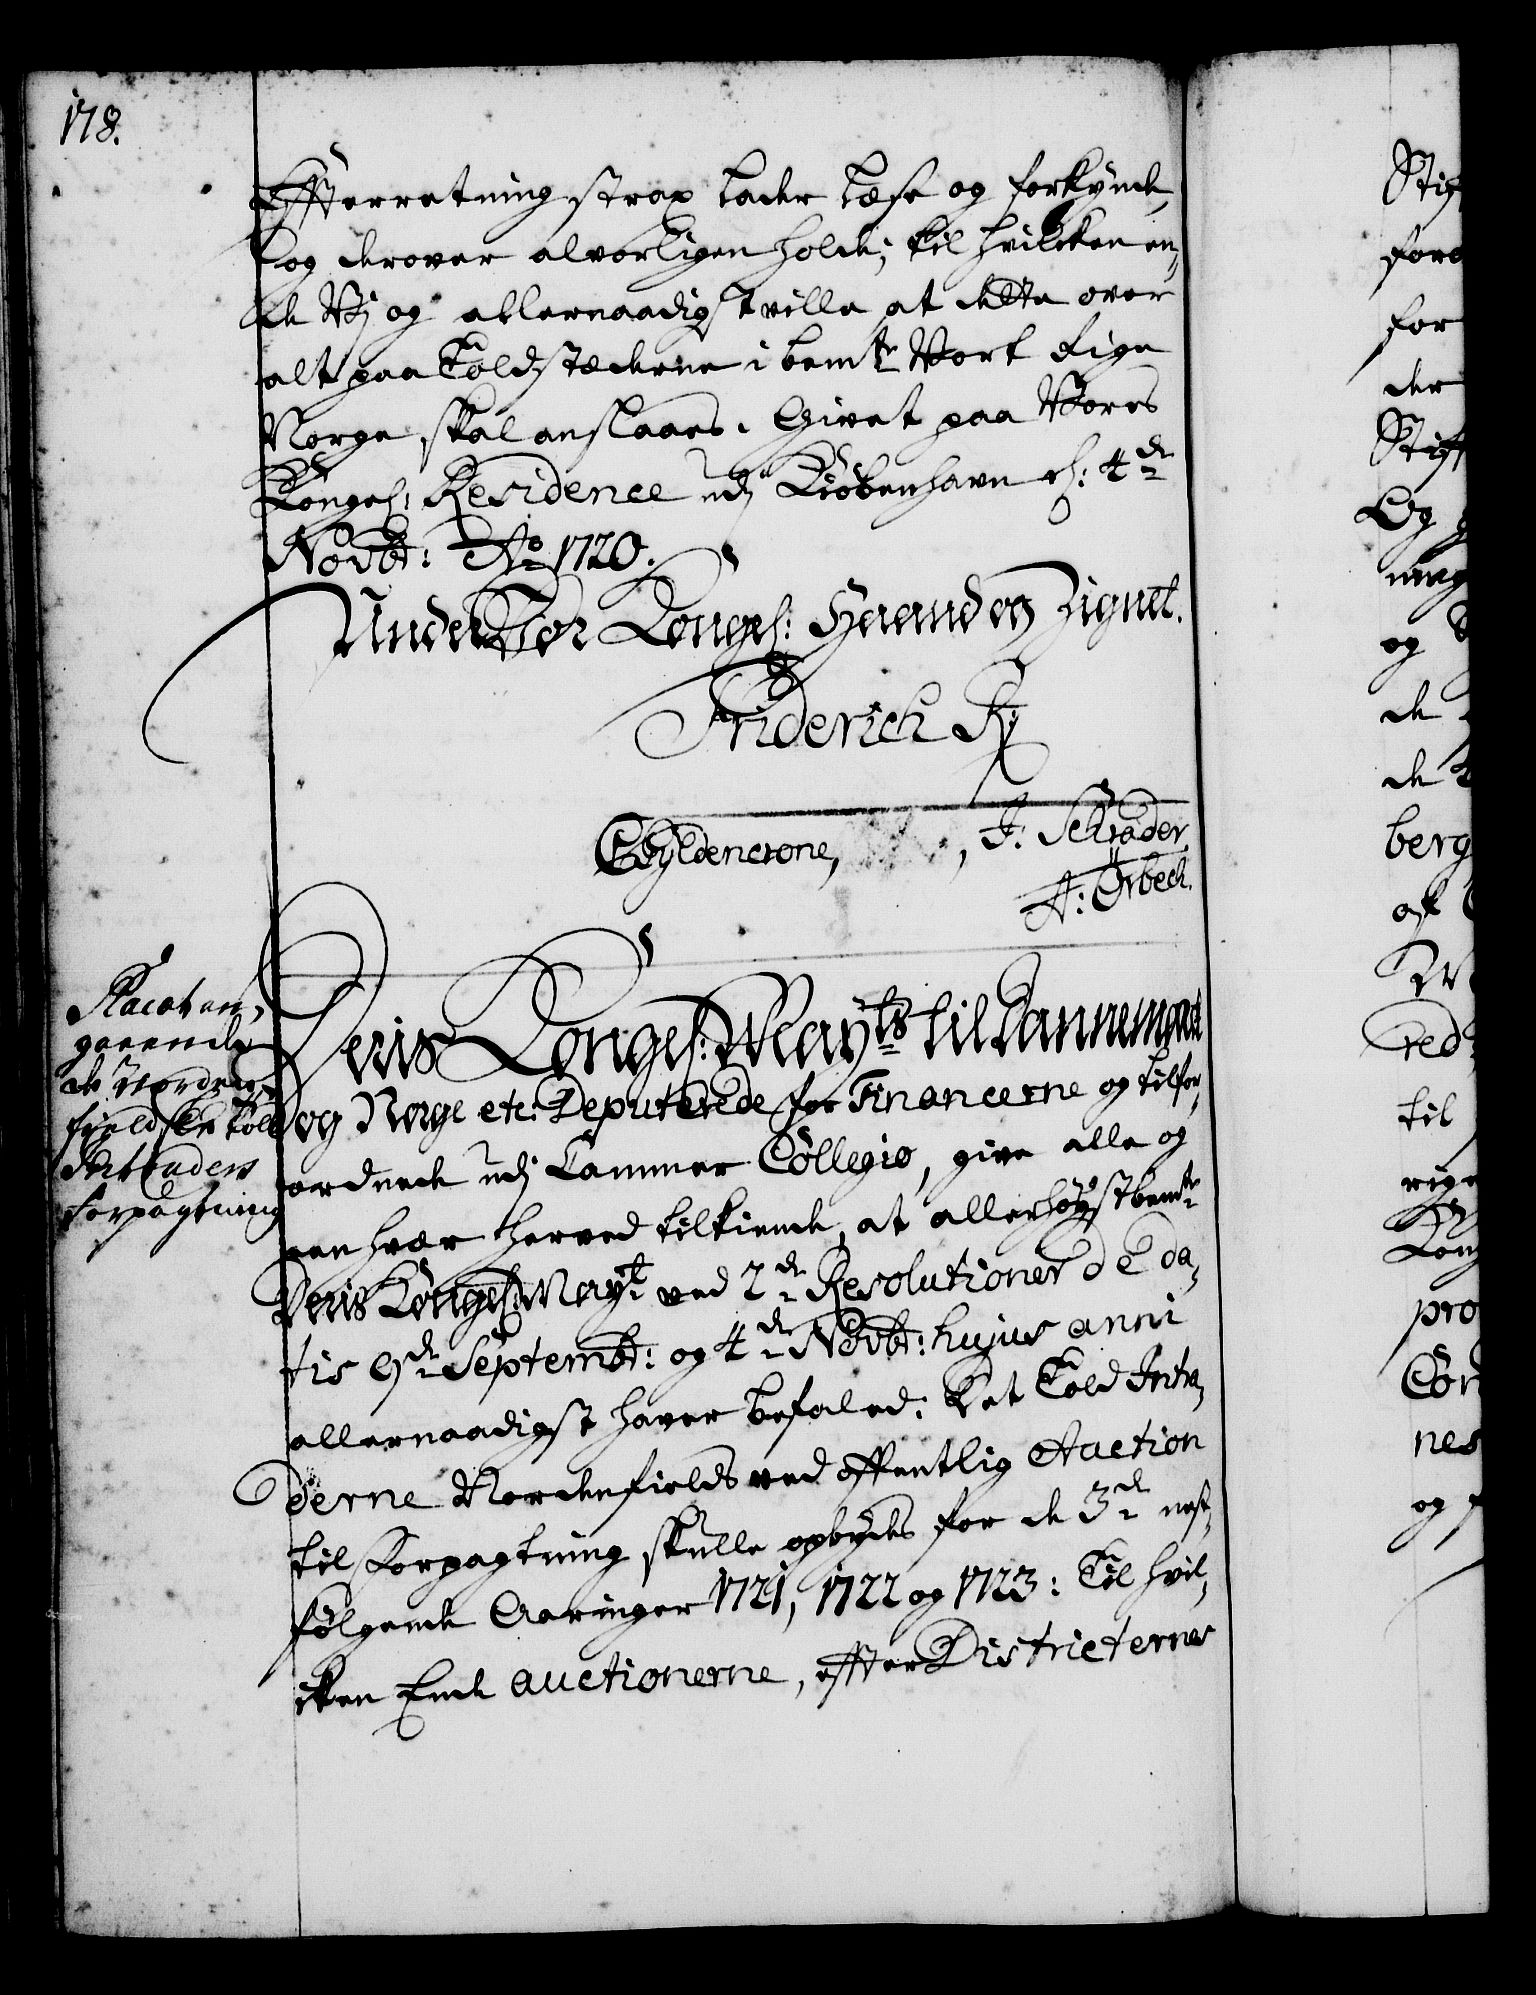 178.
Efterretning strax lader læse og forkynde,
og derover alvorligen holde; til hvilcken en,
de Vi og allernaadigst ville at dette over
alt paa Toldstæderne i bemte Vort Rige
Norge skal anslaaes. Givet paa Vores
Kongel: Residence udj Kiøbenhavn d: 4de
Novbr: Ao 1720.
Under Vor Kongel: Haand og Zignet.
Friderich R:
Gyldencrone, , F: Schrader
A: Ørbech.
Placat an,
gaaende
de Norden,
fieldske Told
Intraders
forpagtning
Deris Kongel: Mayts til Dannemark
og Norge etc: Deputerede for Financerne og tilfor,
ordnede udj Cammer Collegio, give alle og
een hvær herved tilkiende, at allerhøystbemte
Deris Kongel: Mayt ved 2de Resolutioner de da,
tis 9de Septembr: og 4de Novbr: hujus anni
allernaadigst haver befaled: Det Told Intra,
derne Nordenfields ved offentlig Auction
til Forpagtning skulle opbydes for de 3de nest,
følgende Aaringer 1721, 1722 og 1723: Til hvil,
cken Ende auctionerne, efter Districternes
Stif
for
der
Stift
Og
ning
og
de
de
berg
af
red
til
Kong
pro
nes
og